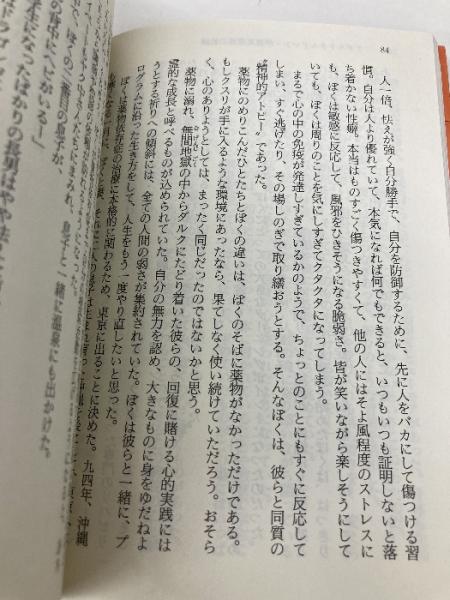 84
人一倍、怯えが強く自分勝手で、自分を防御するために、先に人をバカにして傷つける習
慣。自分は人より優れていて、本気になれば何でもできると、いつもいつも証明しないと落
ち着かない性癖。本当はものすごく傷つきやすくて、他の人にはそよ風程度のストレスに
も、ぼくは敏感に反応して、風邪をひきそうになる脆弱さ。皆が笑いながら楽しそうにして
いても、ぼくは周りのことを気にしすぎてクタクタになってしまう。
まるで心の中の免疫が発達しすぎているかのようで、ちょっとのことにもすぐに反応して
しまい、すぐ逃げたり、その場しのぎで取り繕おうとする。そんなぼくは、彼らと同質の
"精神的アトピー"であった。
薬物にのめりこんだひとたちとぼくの違いは、ぼくのそばに薬物がなかっただけである。
もしクスリが手に入るような環境にあったなら、果てしなく使い続けていただろう。おそら
く、心のありようとしては、まったく同じだったのではないかと思う。
薬物に溺れ、無間地獄の中からダルクにたどり着いた彼らの、回復に賭ける心的実践には
"霊的な成長"と呼べるものが込められていた。自分の無力を認め、大きなものに身をゆだねよ
うとする祈りへの傾斜には、全ての人間の弱さが集約されていた。ぼくは彼らと一緒に、プ
ログラムに沿った生き方をして、人生をもう一度やり直したいと思った。
ぼくは薬物依存症の治療に本格的に関わるため、東京に出ることに決めた。九四年、沖縄